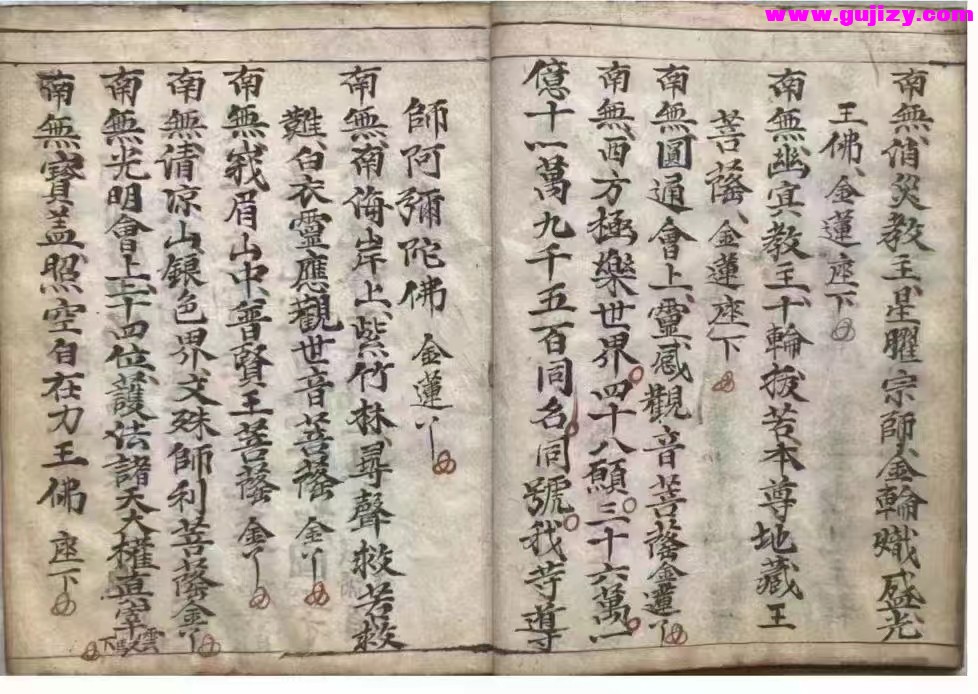 www.gujizy.com
南無消災教主星曜宗師金輪熾盛光
王佛金蓮座下
南無幽冥教主十輪拔苦本尊地藏王
菩薩金蓮座下
南無圓通會上靈感觀音菩薩金蓮丫
南無西方極樂世界四十八願三十六萬一
億十一萬九千五百同名同號我等導
師阿彌陀佛 金蓮丫
南無南海岸上紫竹林尋聲救苦救
難白衣靈應觀世音菩薩 金丫
南無峩眉山中普賢王菩薩 金丫
南無清凉山銀色界文殊師利菩薩金丫
南無光明會上二十四位護法諸天大權真宰
南無寶蓋照空自在力王佛 座下